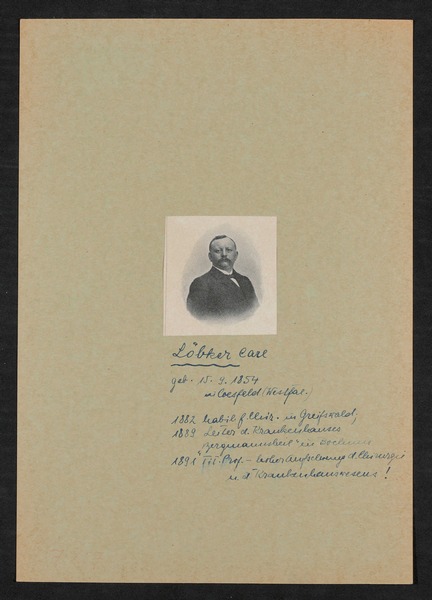 Löbker Carl
geb. 15. 9. 1854
in Coesfeld (Westfal.)
1882 habil. f. Chir. in Greifswald;
1889 Leiter d. Krankenhauses
"Bergmannsheil" in Bochum
1891 Tit. Prof. – hoher Aufschwung d. Chirurgie
u. d. Krankenhauswesens!